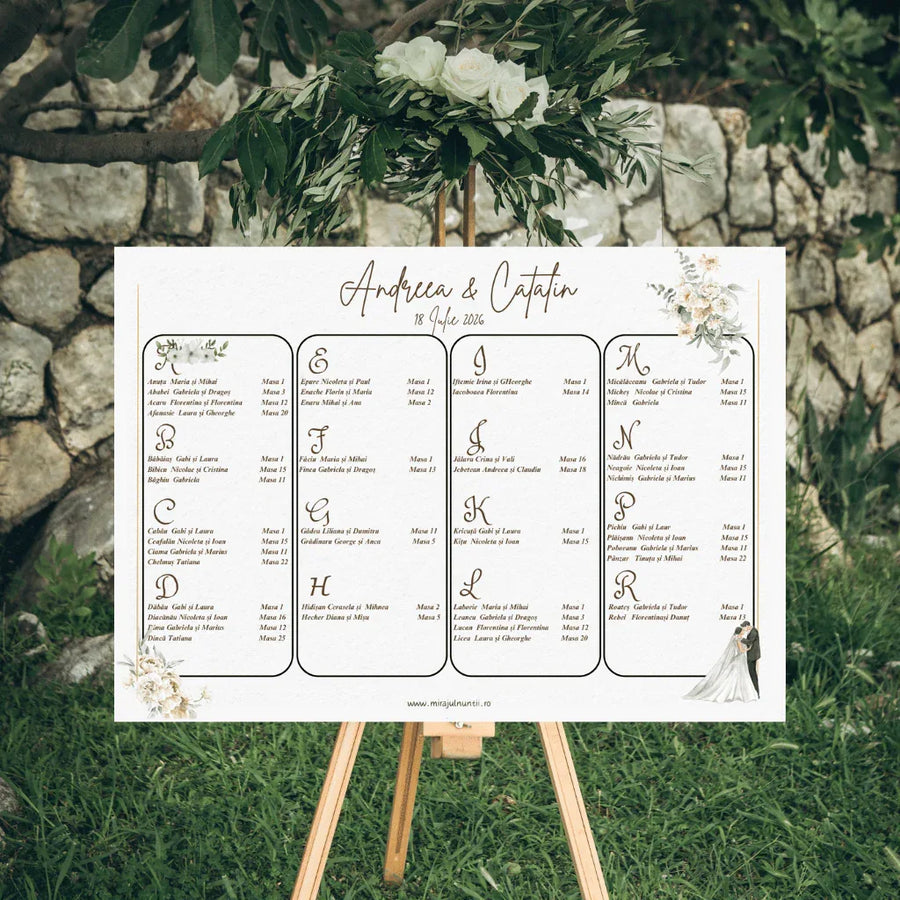 Andreea & Catalin
18 Iulie 2026
A
Anuța Maria și Mihai Masa 1
Ababei Gabriela și Dragoș Masa 3
Acaru Florentina și Florentina Masa 12
Afanasie Laura și Gheorghe Masa 20
B
Băbăiaș Gabi și Laura Masa 1
Bibicu Nicolae și Cristina Masa 15
Băghiu Gabriela Masa 11
C
Cabău Gabi și Laura Masa 1
Ceafalău Nicoleta și Ioan Masa 15
Ciama Gabriela și Marius Masa 11
Chelmuș Tatiana Masa 22
D
Dăbău Gabi și Laura Masa 1
Diacănău Nicoleta și Ioan Masa 16
Dima Gabriela și Marius Masa 12
Dincă Tatiana Masa 25
E
Epure Nicoleta și Paul Masa 1
Enache Florin și Maria Masa 12
Enaru Mihai și Ana Masa 2
F
Făciu Maria și Mihai Masa 1
Finea Gabriela și Dragoș Masa 13
G
Gădru Liliana și Dumitru Masa 11
Grădinaru George și Anca Masa 5
H
Hidișan Cerasela și Mihnea Masa 2
Hecher Diana și Mișu Masa 5
I
Iftemie Irina și GHeorghe Masa 1
Iacoboaea Florentina Masa 14
J
Jălaru Crina și Vali Masa 16
Jebetean Andreea și Claudiu Masa 18
K
Kricuță Gabi și Laura Masa 1
Kițu Nicoleta și Ioan Masa 15
L
Laborie Maria și Mihai Masa 1
Leancu Gabriela și Dragoș Masa 3
Lucan Florentina și Florentina Masa 12
Licea Laura și Gheorghe Masa 20
M
Micălăceanu Gabriela și Tudor Masa 1
Micheș Nicolae și Cristina Masa 15
Mincă Gabriela Masa 11
N
Nădrău Gabriela și Tudor Masa 1
Neagoie Nicoleta și Ioan Masa 15
Nichimiș Gabriela și Marius Masa 11
P
Pichiu Gabi și Laur Masa 1
Plăișanu Nicoleta și Ioan Masa 15
Pohovanu Gabriela și Marius Masa 11
Pânzar Tinuța și Mihai Masa 22
R
Roateș Gabriela și Tudor Masa 1
Rebei Florentinași Danuț Masa 13
www.mirajulnuntii.ro